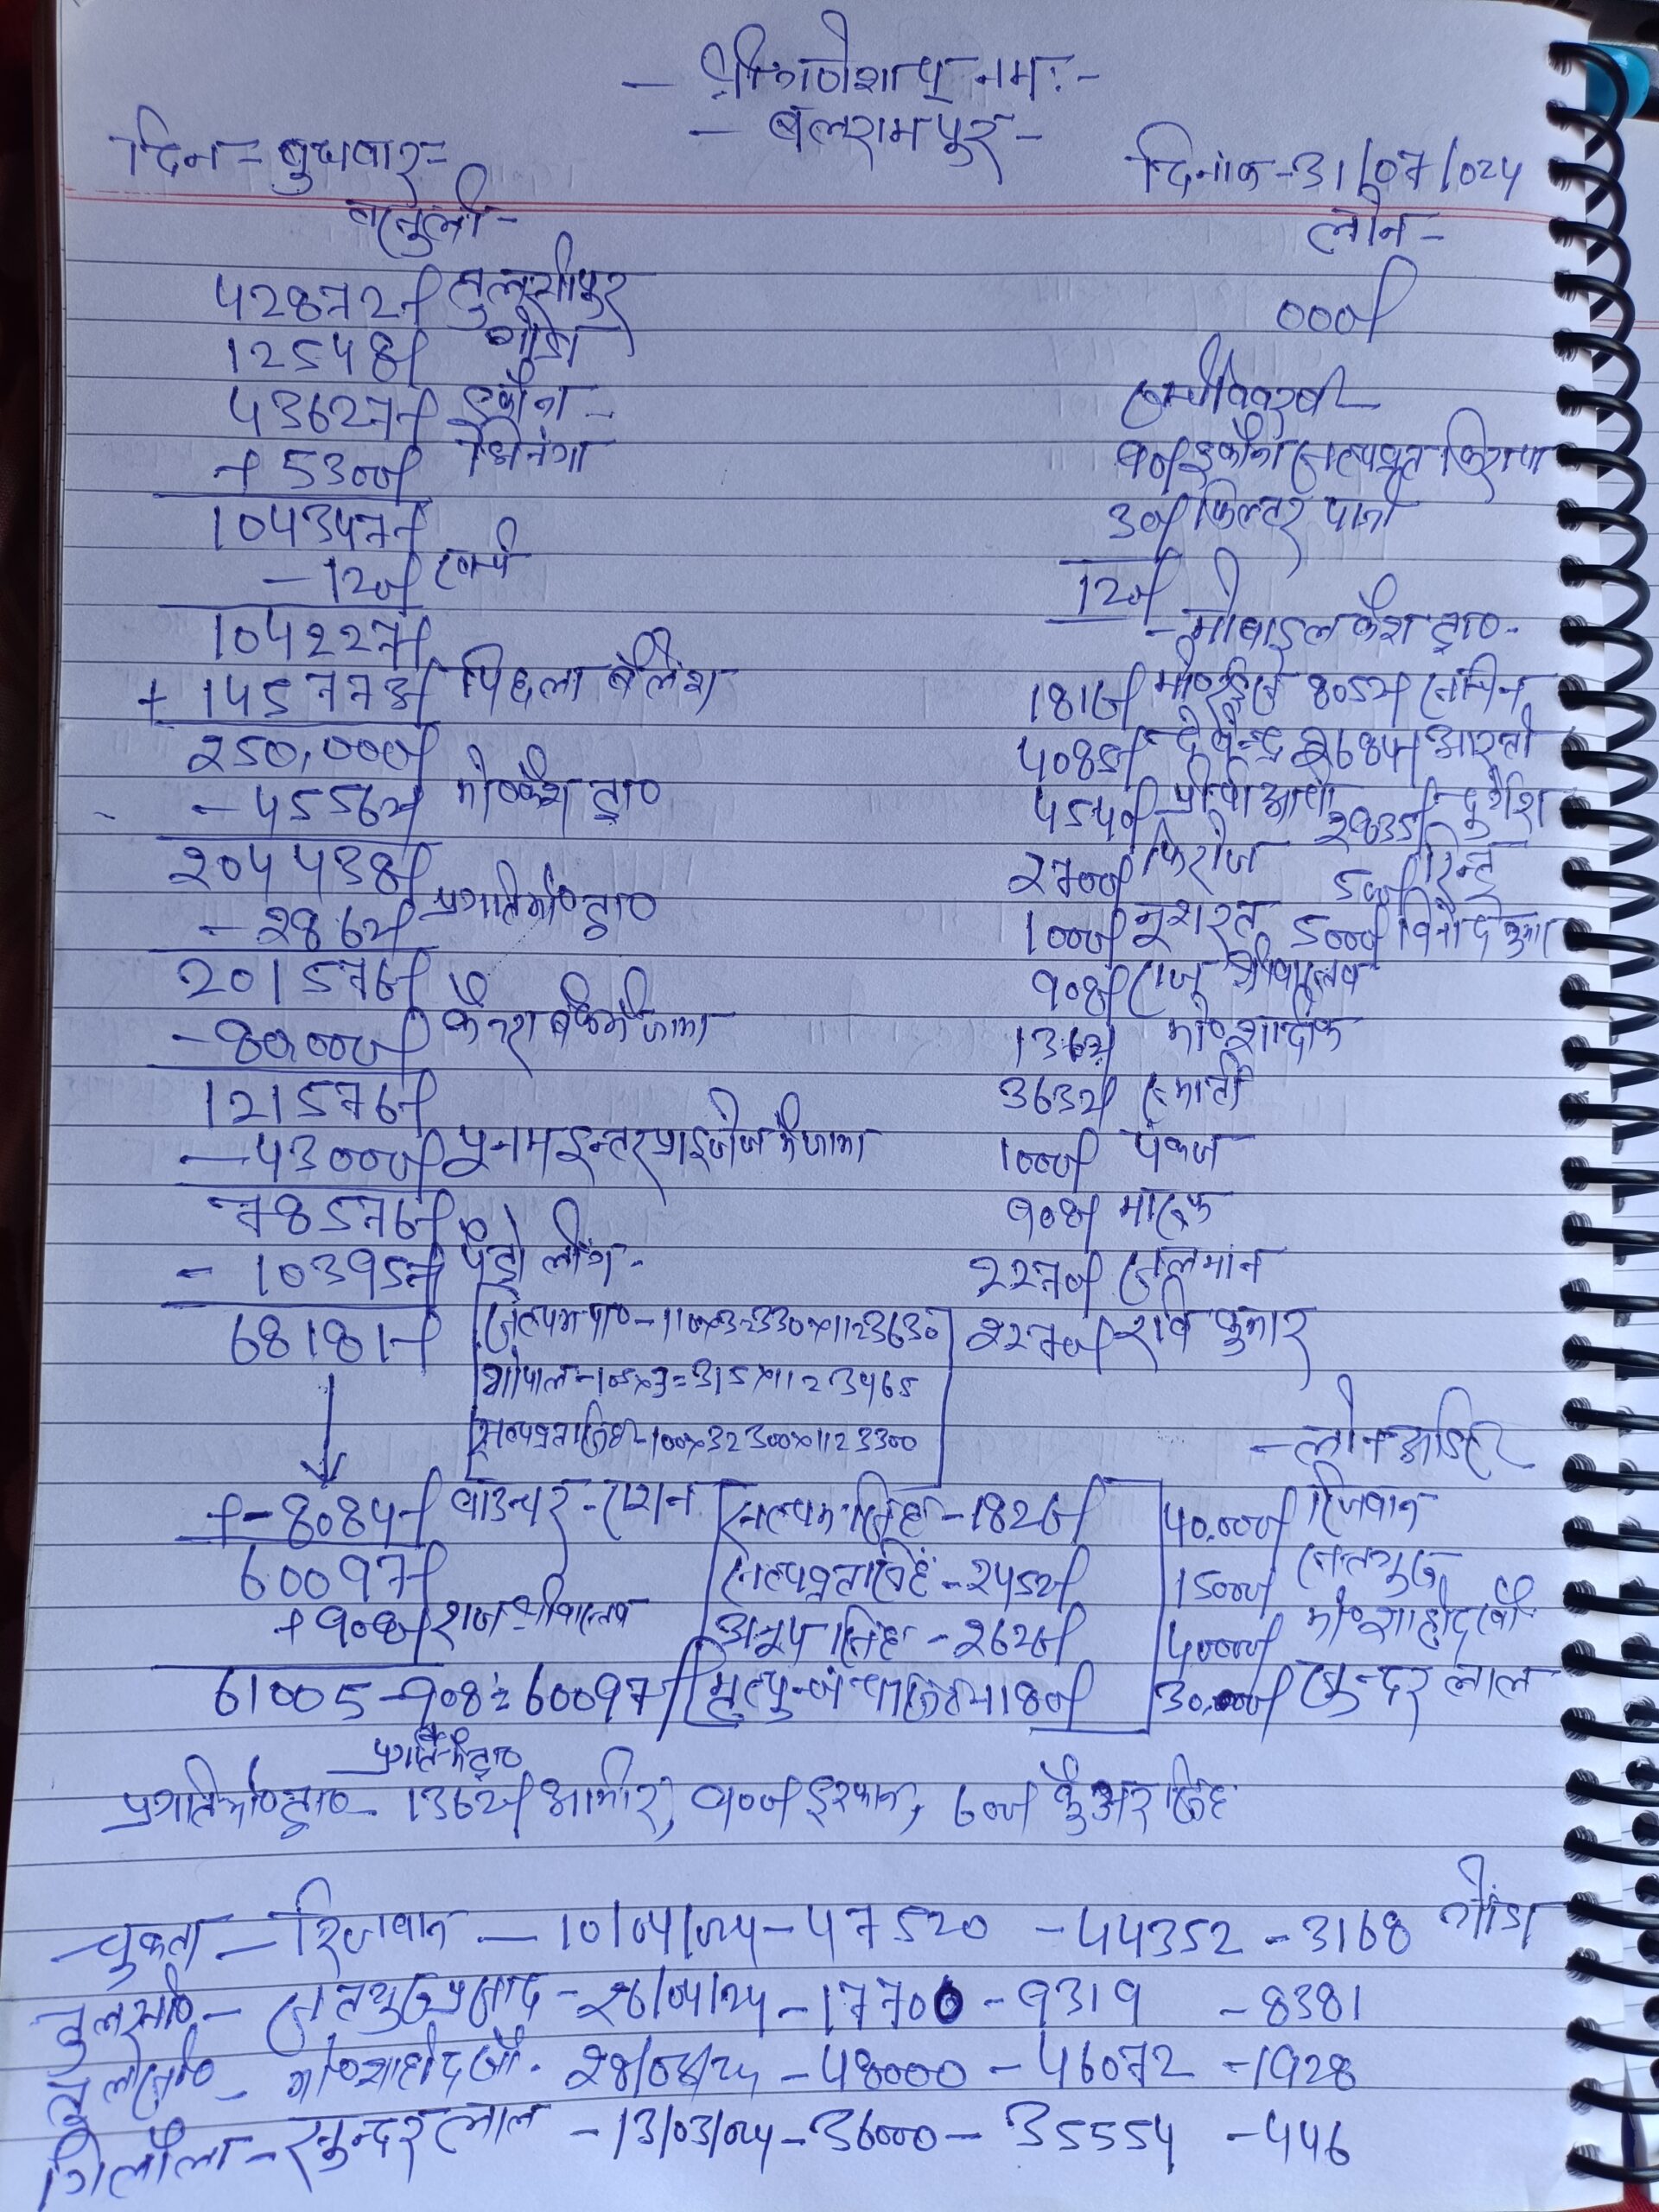 - श्री गणेशाय नमः -
- बलरामपुर -
दिन = बुधवार = दिनांक - 31/07/024
वसूली - लोन -
42872/- तुलसीपुर 000/-
12548/- गोंडा
43627/- इकौना -
+ 5300/- भिनगा 90/- इकौना सत्यव्रत किराया
104347/- 30/- फिल्टर पानी
- 120/- खर्च 120/-
104227/- - मोबाइल कैश ट्रा० -
+ 145773/- पिछला बैलेंश 1816/- 8052/-
250,000/- 4085/- देवेन्द्र 2684/- आरती
- 45562/- मो० कैश ट्रा० 4540/- 2835/- दुर्गेश
204438/- 2700/- फिरोज 500/-
- 2862/- प्रगति मो० ट्रा० 1000/- नुशरत 5000/- विनोद कुमार
201576/- 908/- राज श्रीवास्तव
- 80,000/- कैनरा बैंक में जमा 1362/- मो० शादीक
121576/- 3632/-
- 43000/- पूनम इन्टरप्राइजेज में जमा 1000/- पंकज
78576/- 908/-
- 10395/- पेट्रोलींग - 2270/- सलमान
68181/- सत्यम पा० - 110×3=330×11=3630 2270/- रवि कुमार
गोपाल - 105×3=315×11=3465
सत्यव्रत सिंह - 100×3=300×11=3300 - लोन आर्डर
- 8084/- वाउचर - राशन सत्यम सिंह - 1826/- 40,000/- रिजवान
60097/- सत्यव्रत सिंह - 2452/- 15000/- सतगुरु
+ 908/- राज श्रीवास्तव अनूप सिंह - 2626/- 40000/- मो० शाहीद खाँ
61005 - 908 = 60097/- मृत्युन्जय 1180/- 30,000/- सुन्दर लाल
प्रगति मो० ट्रा० - 1362/- आमीर, 900/- इरफान, 600/- कुँअर सिंह
चुकता - रिजवान - 10/04/024 - 47520 - 44352 - 3168 गोंडा
तुलसी० - सतगुरु प्रसाद - 26/04/24 - 17700 - 9319 - 8381
तुलसी० - मो० शाहीद खाँ - 48000 - 46072 - 1928
गिलौला - सुन्दर लाल - 13/03/024 - 36000 - 35554 - 446